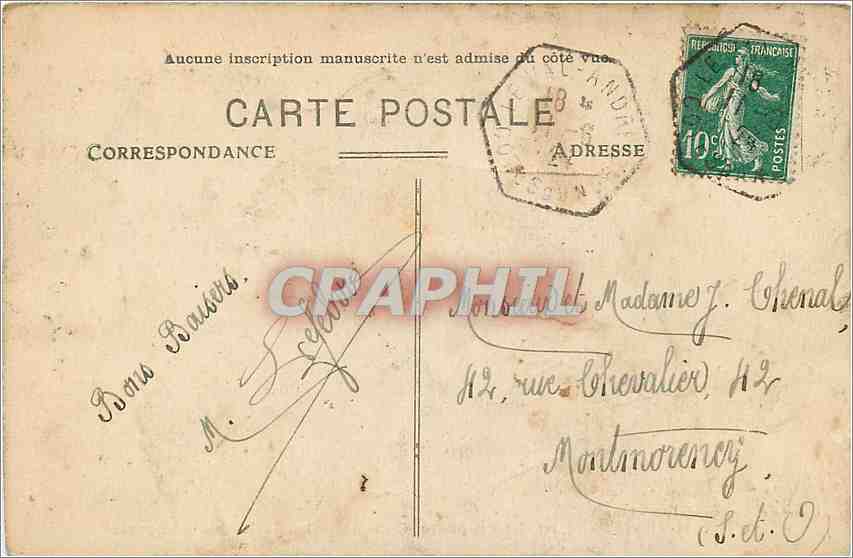 Aucune inscription manuscrite n'est admise du côté vue
CARTE POSTALE
CORRESPONDANCE
ADRESSE
REPUBLIQUE FRANÇAISE
10c
POSTES
VAL-ANDRE
18
24
CRAPHIL
Bons Baisers.
M. Lefebvre
Monsieur et Madame J. Chenal,
42, rue Chevalier, 42
Montmorency,
(S. et. O)